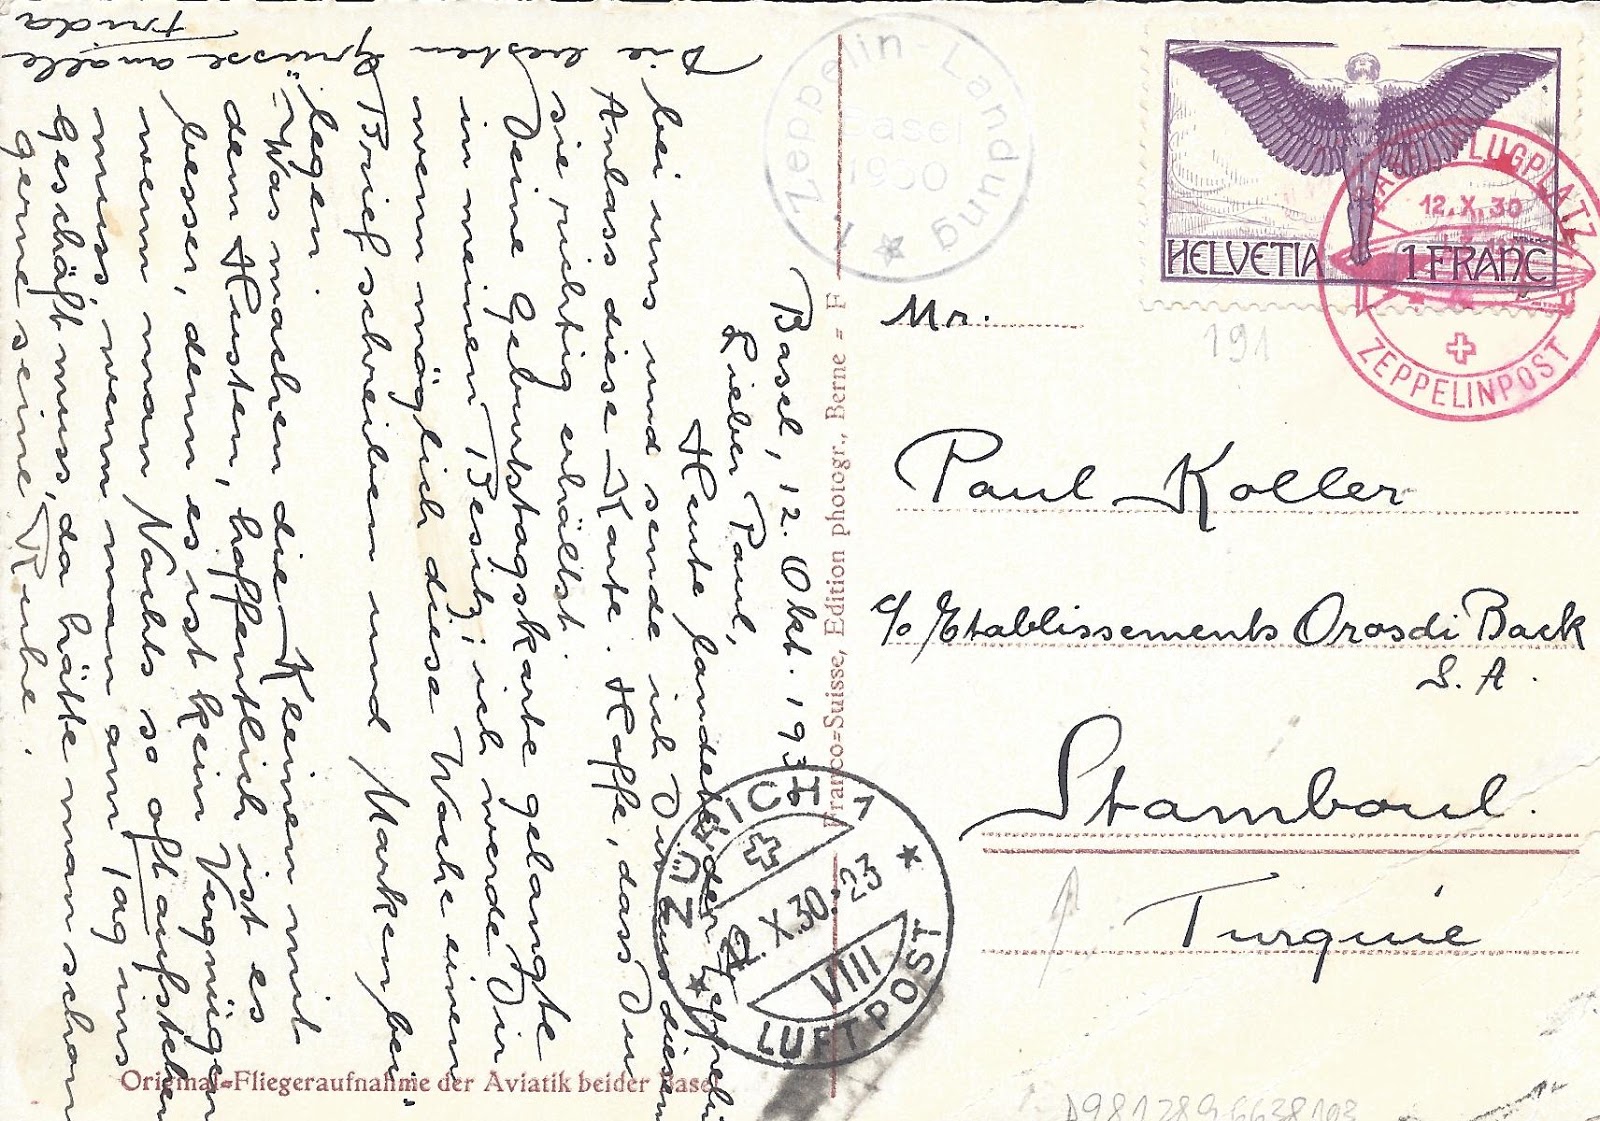 Basel, 12. Okt. 1930
Lieber Paul,
Heute landete der Zeppelin
bei uns und sende ich Dir aus diesem
Anlass diese Karte. Hoffe, dass Du
sie richtig erhältst.
Deine Geburtstagskarte gelangte
in meinen Besitz, ich werde Dir
wenn möglich diese Woche einen
Brief schreiben und Marken bei-
legen.
"Was machen die Kleinen mit
dem Husten, hoffentlich ist es
besser, denn es ist kein Vergnügen
wenn man Nachts so oft aufstehen
muss, wenn man am Tag ins
Geschäft muss, da hätte man schon
gerne seine Ruhe.
Die besten Grüsse an alle
Frida
Zeppelin-Landung
Basel
1930
HELVETIA 1 FRANC
BASEL FLUGPLATZ
12.X.30
ZEPPELINPOST
191
Mr.
Paul Koller
c/o Etablissements Orosdi Back
S. A.
Stamboul.
Turquie
ZÜRICH 1
12.X.30.-23
VIII
LUFTPOST
Franco=Suisse, Edition photogr., Berne = F
Original=Fliegeraufnahme der Aviatik beider Basel